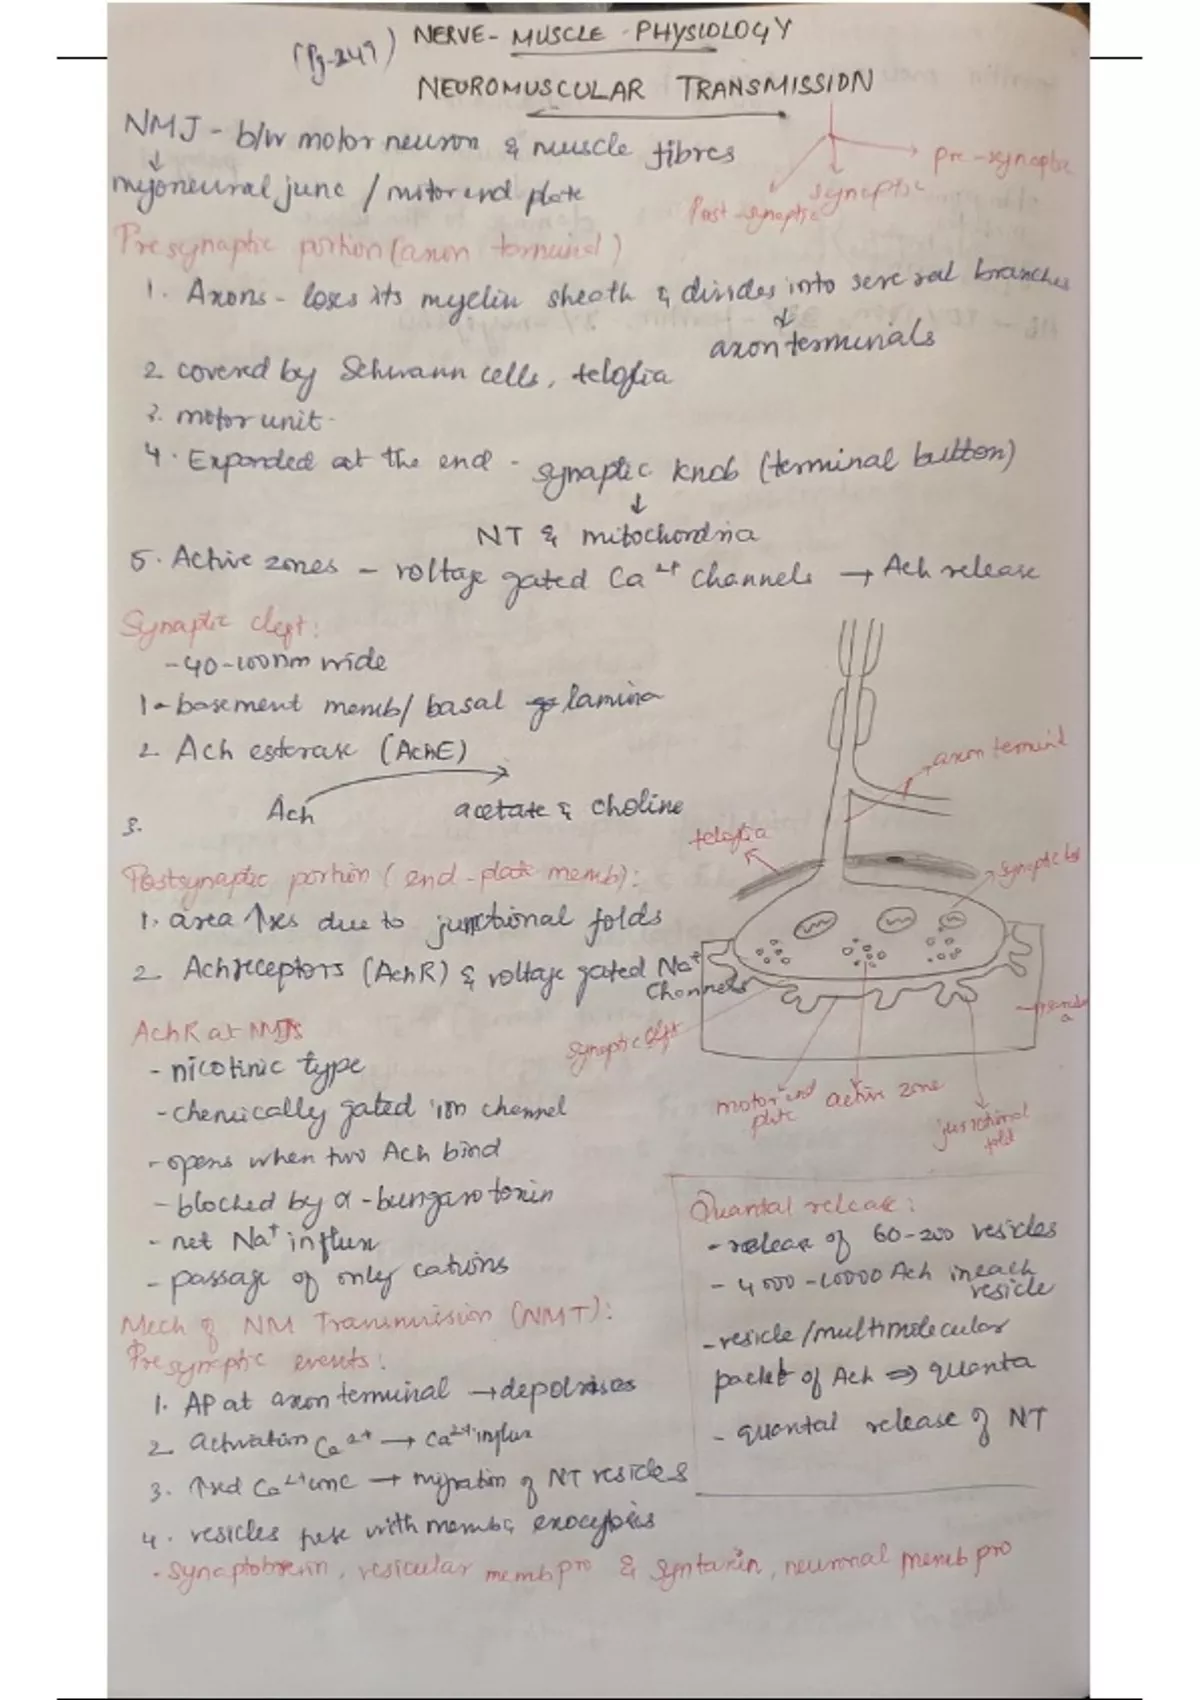 (Pg-249) NERVE- MUSCLE - PHYSIOLOGY
NEUROMUSCULAR TRANSMISSION
NMJ - b/w motor neuron & muscle fibres
↓
myoneural junc / motor end plate
pre-synaptic
synaptic
Post-synaptic
Presynaptic portion (axon terminal)
1. Axons - loses its myelin sheath & divides into several branches
↓
axon terminals
2. covered by Schwann cells, teloglia
3. motor unit -
4. Expanded at the end - synaptic knob (terminal button)
↓
NT & mitochondria
5. Active zones - voltage gated Ca2+ channels → Ach release
Synaptic cleft:
-40-100nm wide
1- basement memb/ basal lamina
2. Ach esterase (AchE)
Ach → acetate & choline
3.
Postsynaptic portion (end-plate memb):
1. area ↑ses due to junctional folds
2. Ach receptors (AchR) & voltage gated Na+ channels
AchR at NMJs
- nicotinic type
- chemically gated ion channel
- opens when two Ach bind
- blocked by α-bungarotoxin
- net Na+ influx
- passage of only cations
axon terminl
teloglia
synaptic
synaptic cleft
motor end plate
active zone
junctional fold
Quantal release:
- release of 60-200 vesicles
- 4000-10000 Ach in each vesicle
- vesicle/multimolecular
packet of Ach ⇒ quanta
- quantal release of NT
Mech of NM Transmission (NMT):
Presynaptic events:
1. AP at axon terminal → depolarises
2. activation Ca2+ → Ca2+ influx
3. ↑sed Ca2+ conc → migration of NT vesicles
4. vesicles fuse with memb & exocytosis
- Synaptobrevin, vesicular memb pro & syntaxin, neuronal memb pro